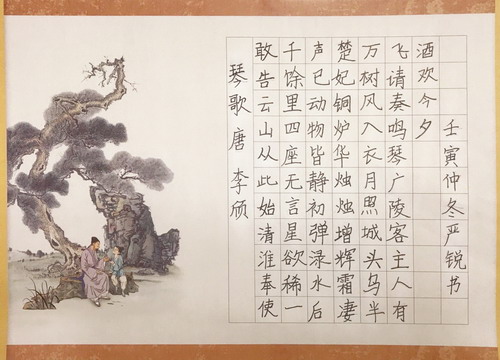 琴歌 唐 李颀
敢告云山从此始清淮奉使
千馀里四座无言星欲稀一
声已动物皆静初弹渌水后
楚妃铜炉华烛烛增辉霜凄
万树风入衣月照城头乌半
飞请奏鸣琴广陵客主人有
酒欢今夕
壬寅仲冬严锐书